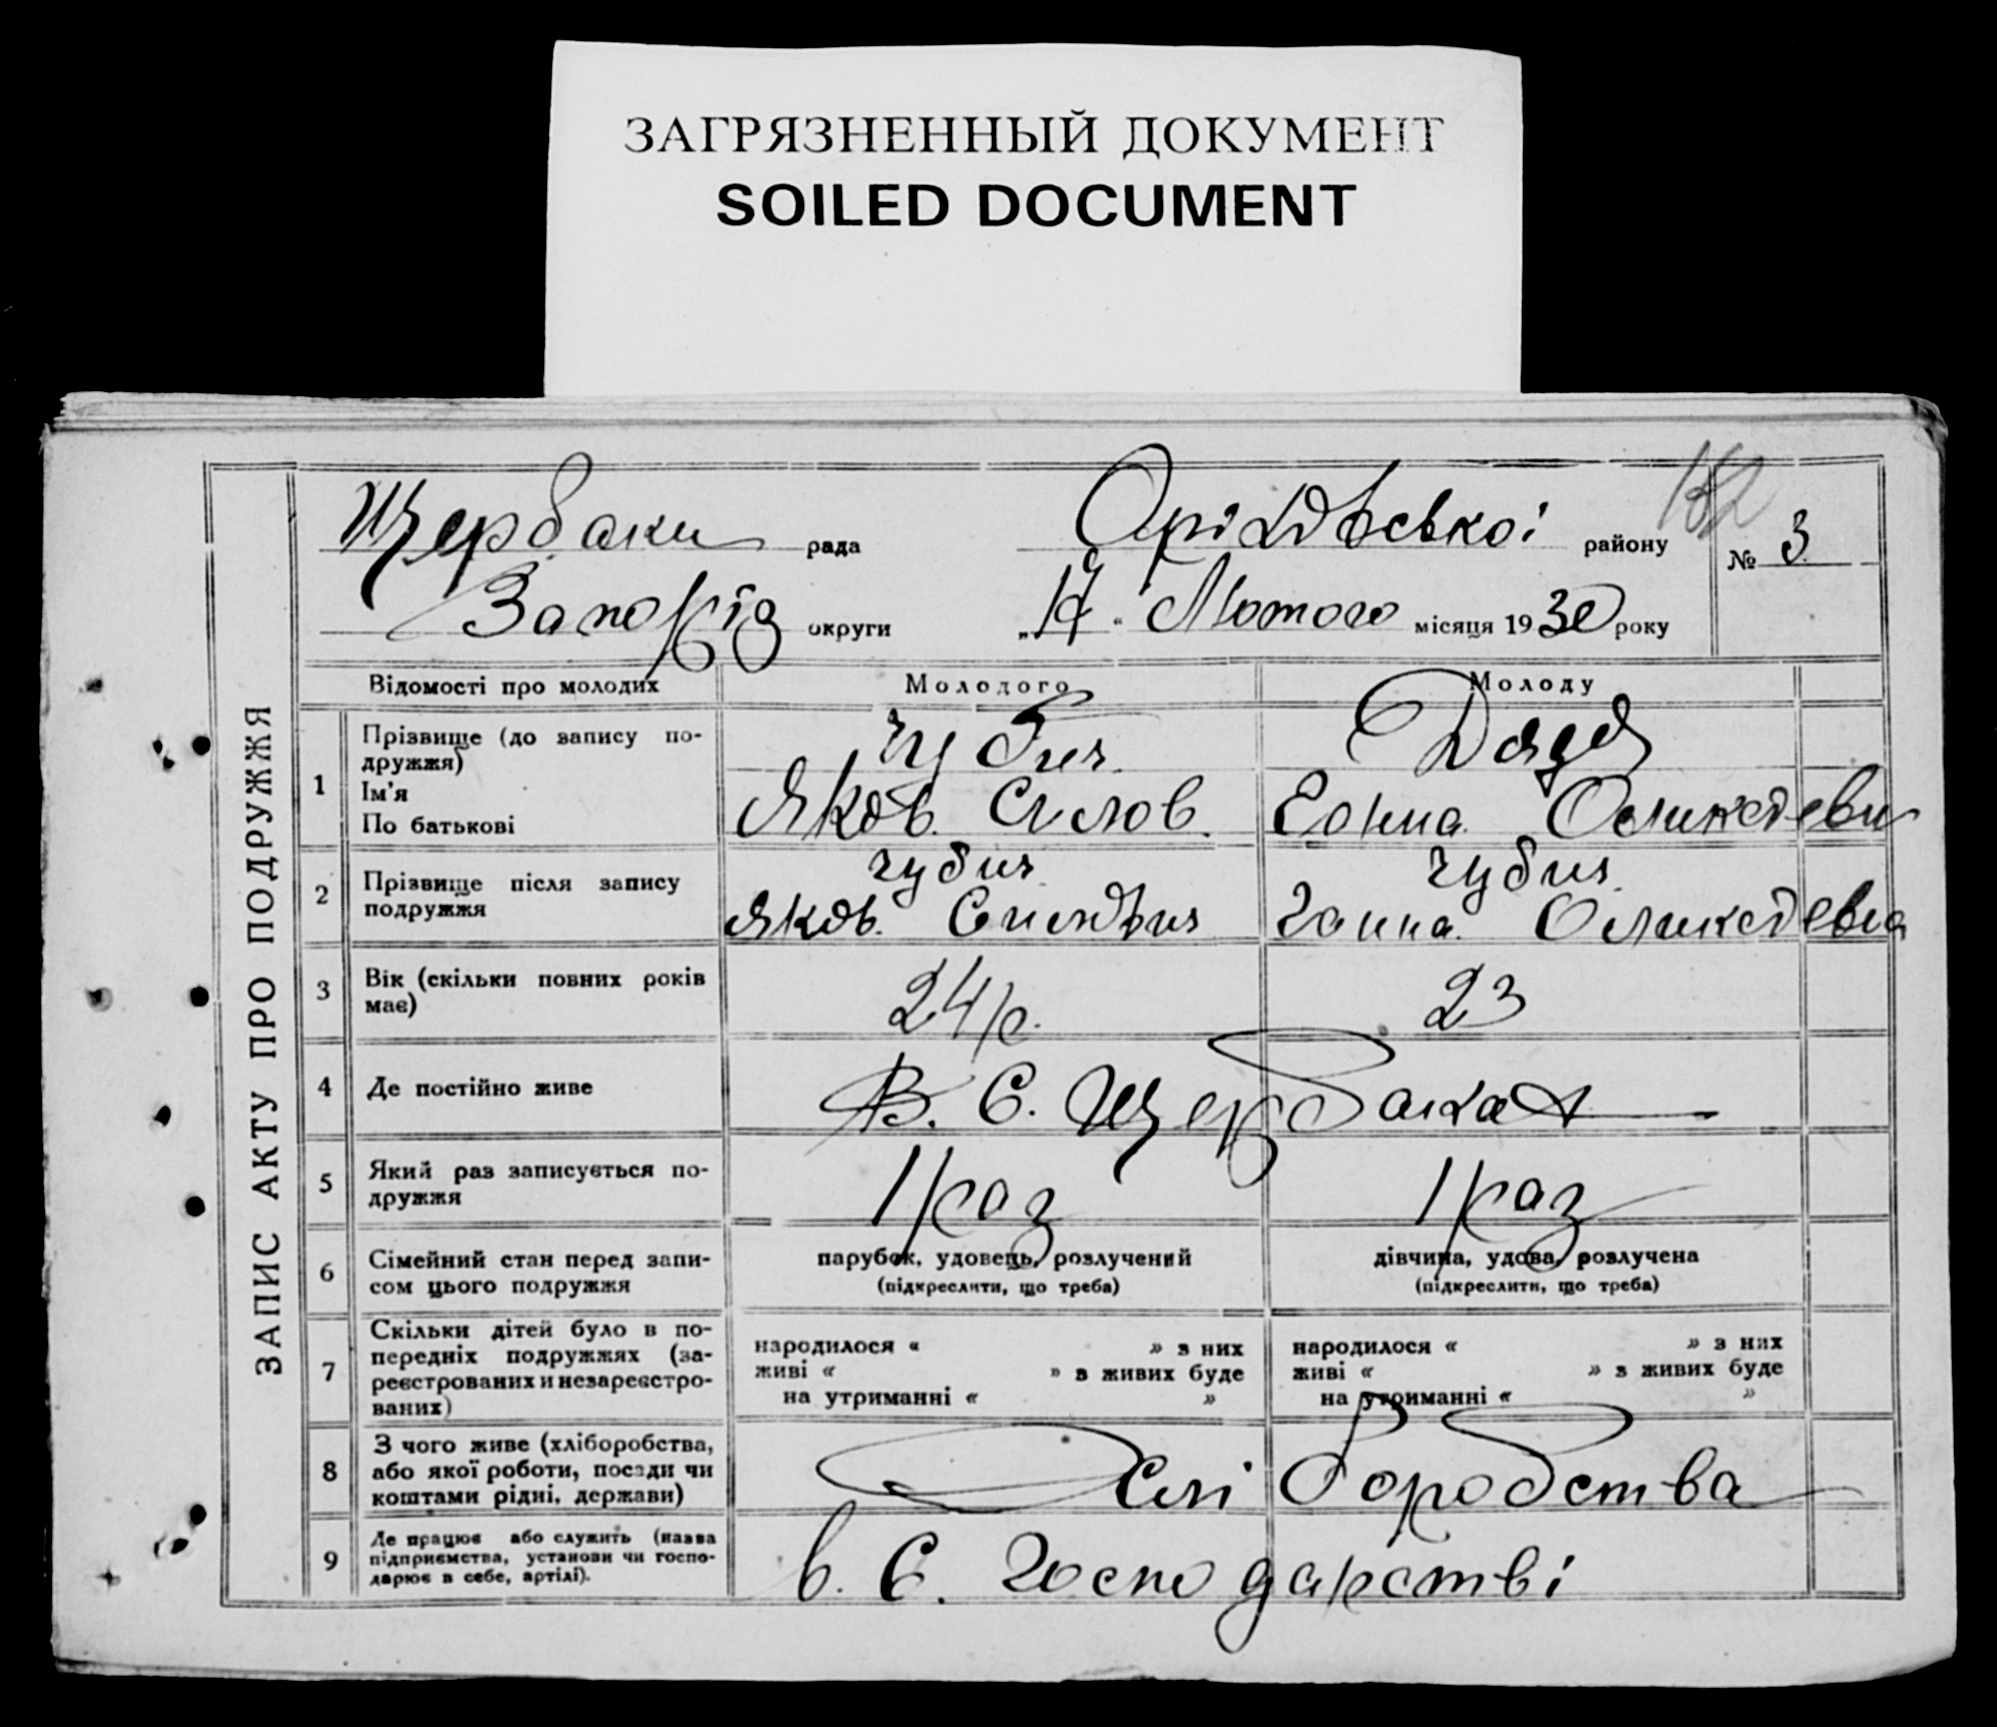 ЗАГРЯЗНЕННЫЙ ДОКУМЕНТ
SOILED DOCUMENT
ЗАПИС АКТУ ПРО ПОДРУЖЖЯ
Щербаки рада Оріхівської району № 3
Запоріз округи „ “ Лютого місяця 1930 року
Відомості про молодих Молодого Молоду
1 Прізвище (до запису по-
дружжя)
Ім'я
По батькові
Чубич Дядя
Яков. Силов. Ганна
2 Прізвище після запису
подружжя
Чубич Чубич
Яков. Силович Ганна
3 Вік (скільки повних років
має)
24 р. 23
4 Де постійно живе В. С. Щербаках
5 Який раз записується по-
дружжя
1 раз 1 раз
6 Сімейний стан перед запи-
сом цього подружжя
парубок, удовець, розлучений
(підкреслити, що треба)
дівчина, удова, розлучена
(підкреслити, що треба)
7 Скільки дітей було в по-
передніх подружжях (за-
реєстрованих и незареєстро-
ваних)
народилося « » з них
живі « » з живих буде
на утриманні « »
народилося « » з них
живі « » з живих буде
на утриманні « »
8 З чого живе (хліборобства,
або якої роботи, посади чи
коштами рідні, держави)
Хліборобства
9 Де працює або служить (назва
підприємства, установи чи госпо-
дарює в себе, артілі).
в. С. Господарстві